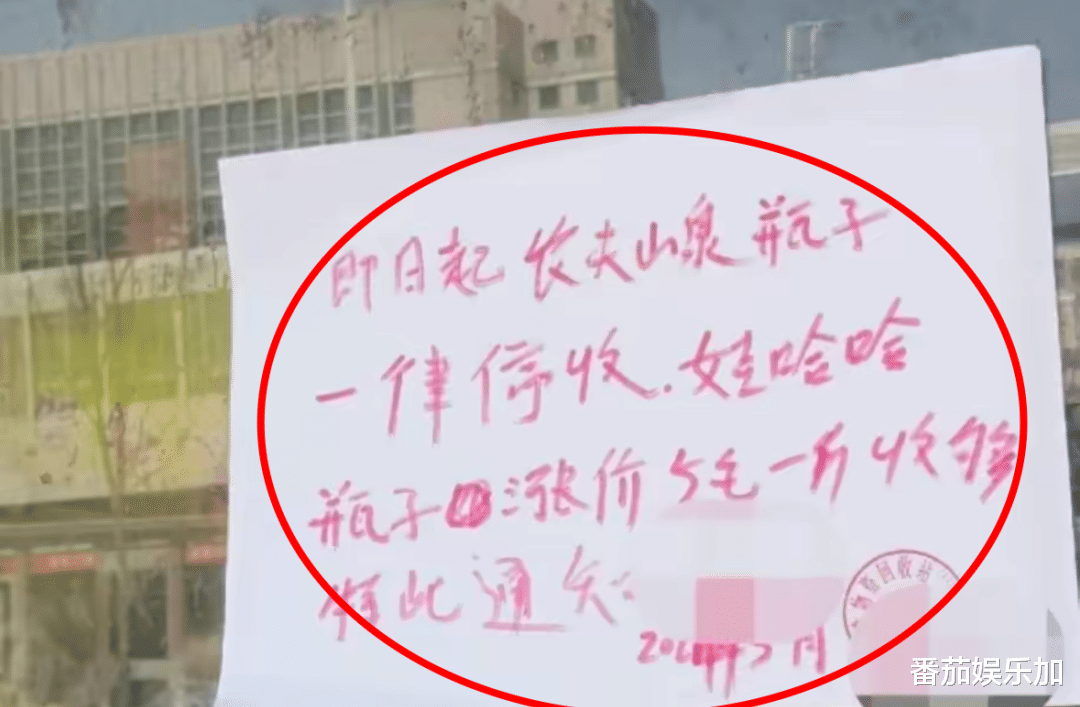 即日起农夫山泉瓶子
一律停收.娃哈哈
瓶子涨价5毛一斤收够
特此通知:
物资回收站
月
番茄娱乐加